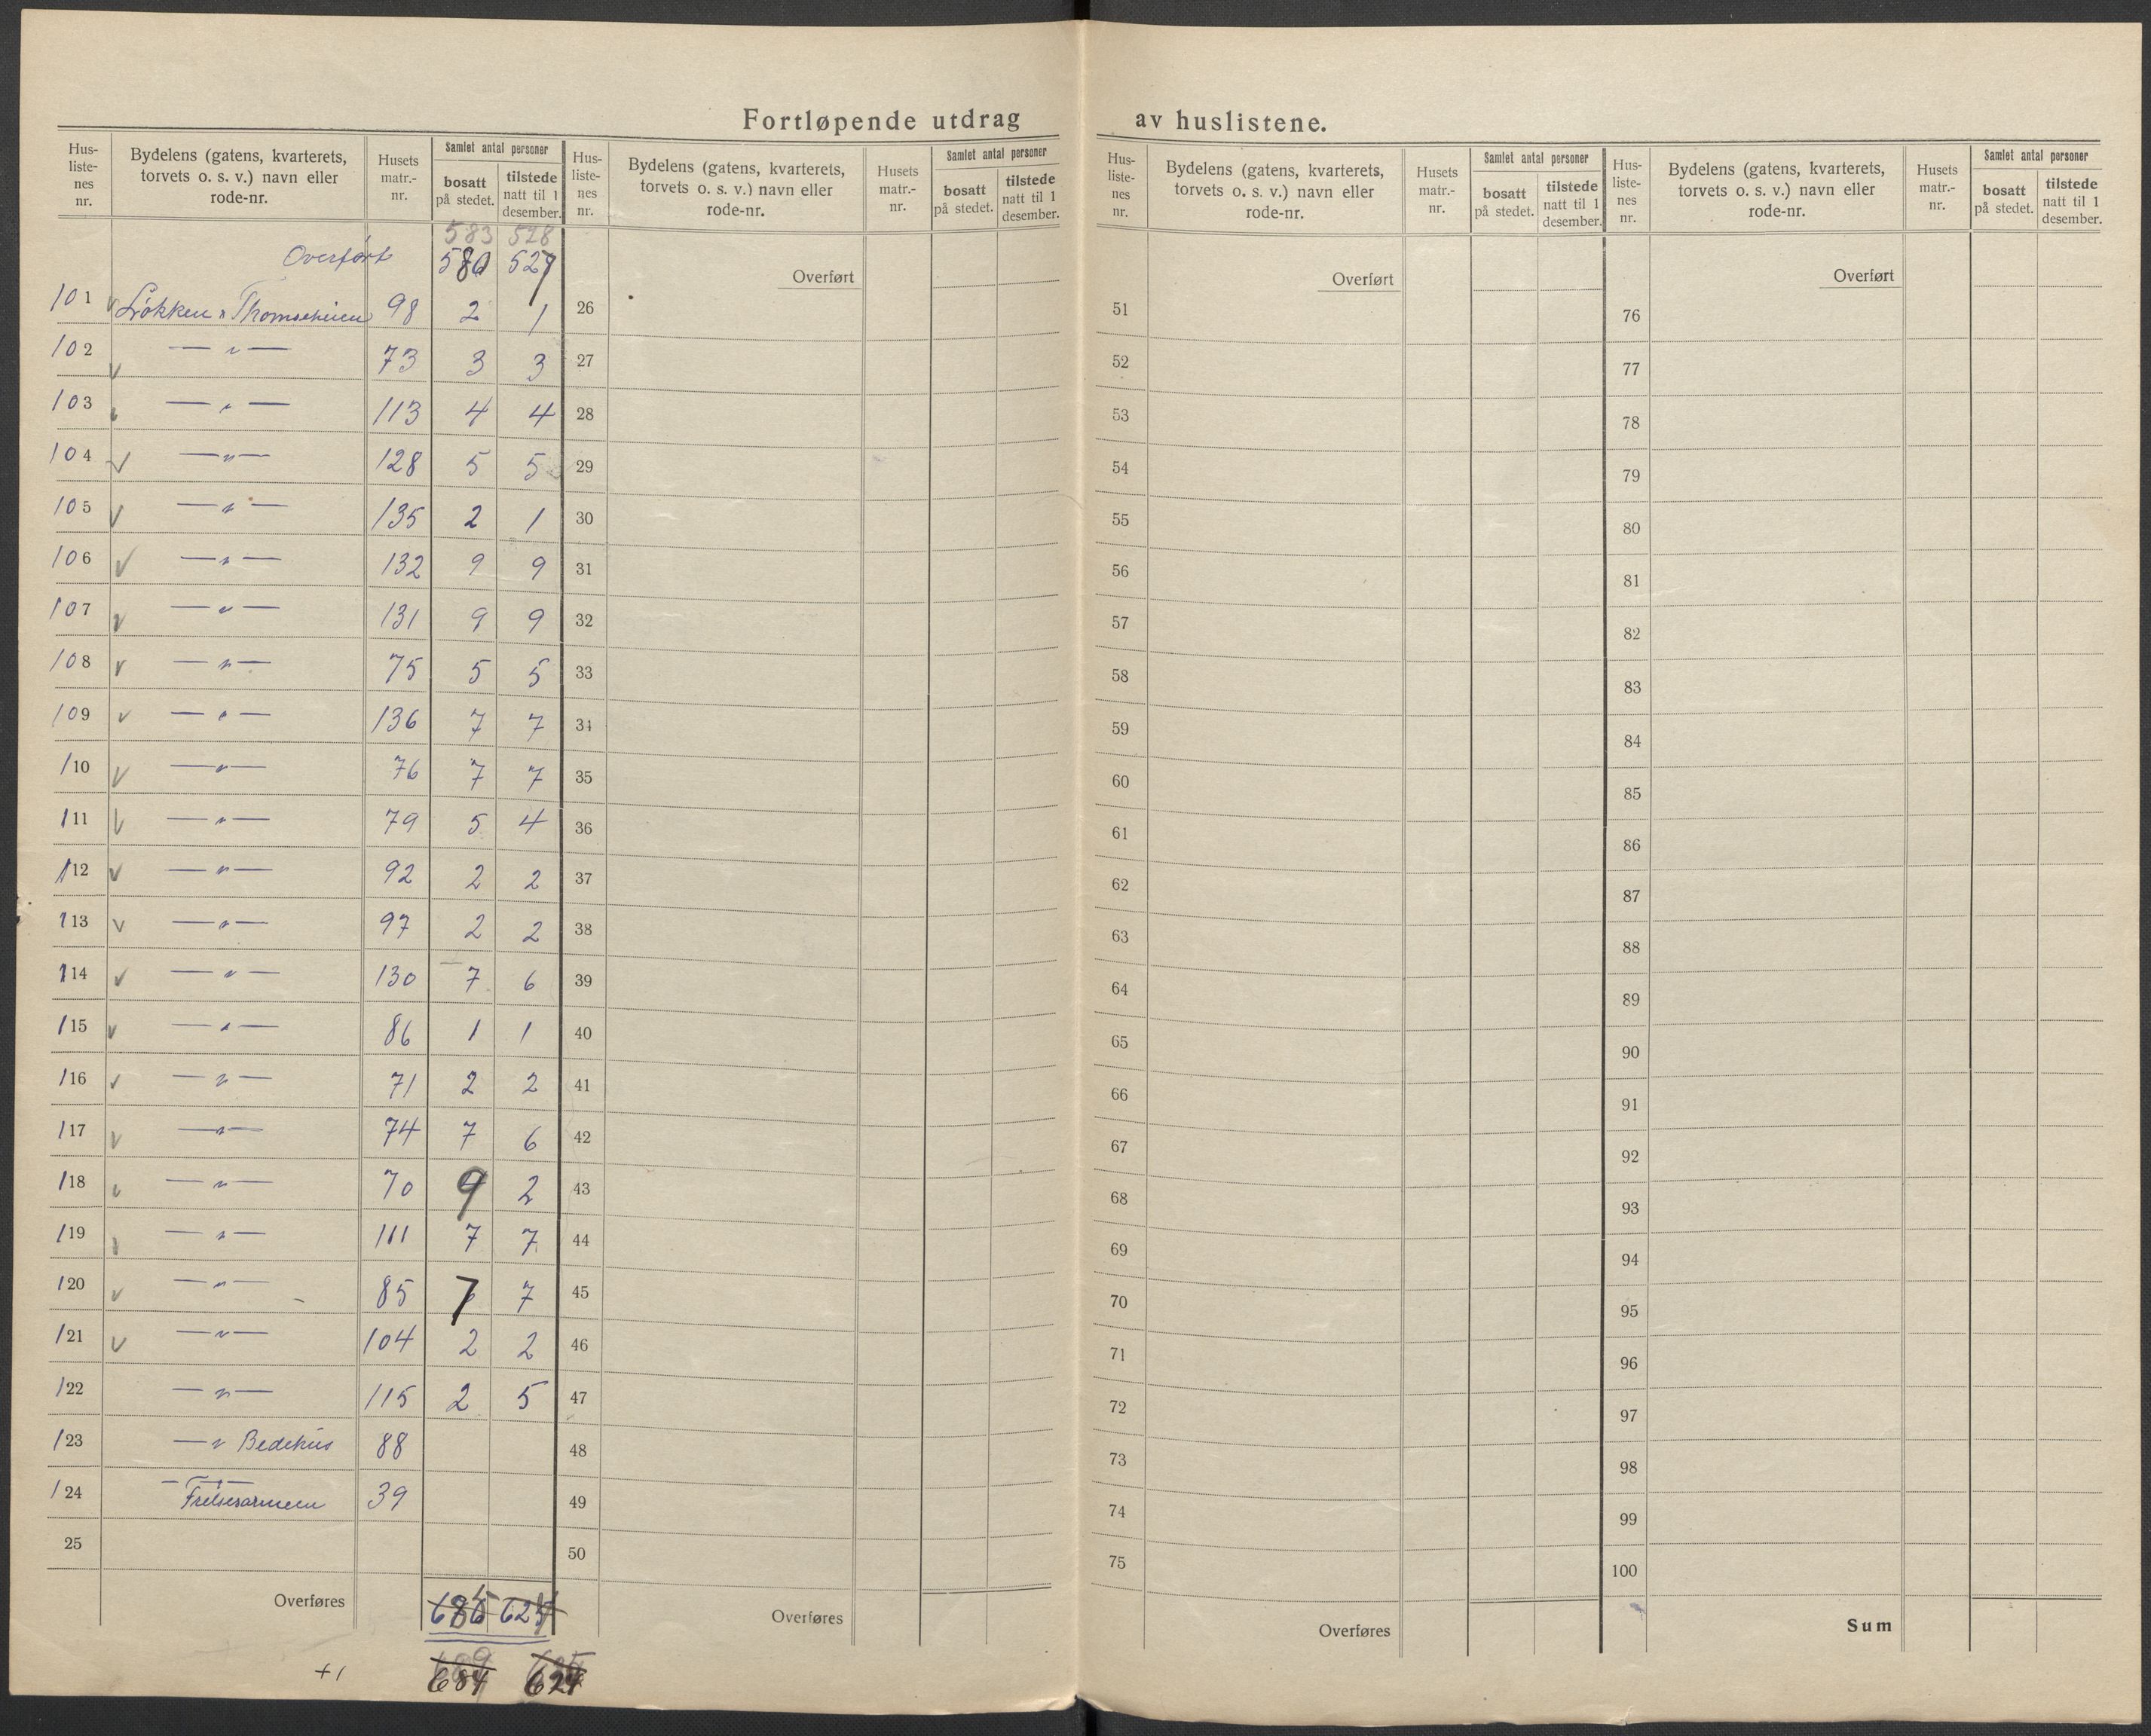 Fortløpende utdrag av huslistene.
Hus-listenes nr. Bydelens (gatens, kvarterets, torvets o. s. v.) navn eller rode-nr. Husets matr.-nr. Samlet antal personer bosatt på stedet. tilstede natt til 1 desember.
583 528
Overført 527
101 Løkken & Thomseheien 98 2 1
102 — " — 73 3 3
103 — " — 113 4 4
104 — " — 128 5 5
105 — " — 135 2 1
106 — " — 132 9 9
107 — " — 131 9 9
108 — " — 75 5 5
109 — " — 136 7 7
110 — " — 76 7 7
111 — " — 79 5 4
112 — " — 92 2 2
113 — " — 97 2 2
114 — " — 130 7 6
115 — " — 86 1 1
116 — " — 71 2 2
117 — " — 74 7 6
118 — " — 70 9 2
119 — " — 111 7 7
120 — " — 85 7 7
121 — " — 104 2 2
122 — " — 115 2 5
123 — " Bedehus 88
124 — " — Frelsesarmeen 39
25
Overføres
+1 684 624
Hus-listenes nr. Bydelens (gatens, kvarterets, torvets o. s. v.) navn eller rode-nr. Husets matr.-nr. Samlet antal personer bosatt på stedet. tilstede natt til 1 desember.
Overført
26
27
28
29
30
31
32
33
34
35
36
37
38
39
40
41
42
43
44
45
46
47
48
49
50
Overføres
Hus-listenes nr. Bydelens (gatens, kvarterets, torvets o. s. v.) navn eller rode-nr. Husets matr.-nr. Samlet antal personer bosatt på stedet. tilstede natt til 1 desember.
Overført
51
52
53
54
55
56
57
58
59
60
61
62
63
64
65
66
67
68
69
70
71
72
73
74
75
Overføres
Hus-listenes nr. Bydelens (gatens, kvarterets, torvets o. s. v.) navn eller rode-nr. Husets matr.-nr. Samlet antal personer bosatt på stedet. tilstede natt til 1 desember.
Overført
76
77
78
79
80
81
82
83
84
85
86
87
88
89
90
91
92
93
94
95
96
97
98
99
100
Sum